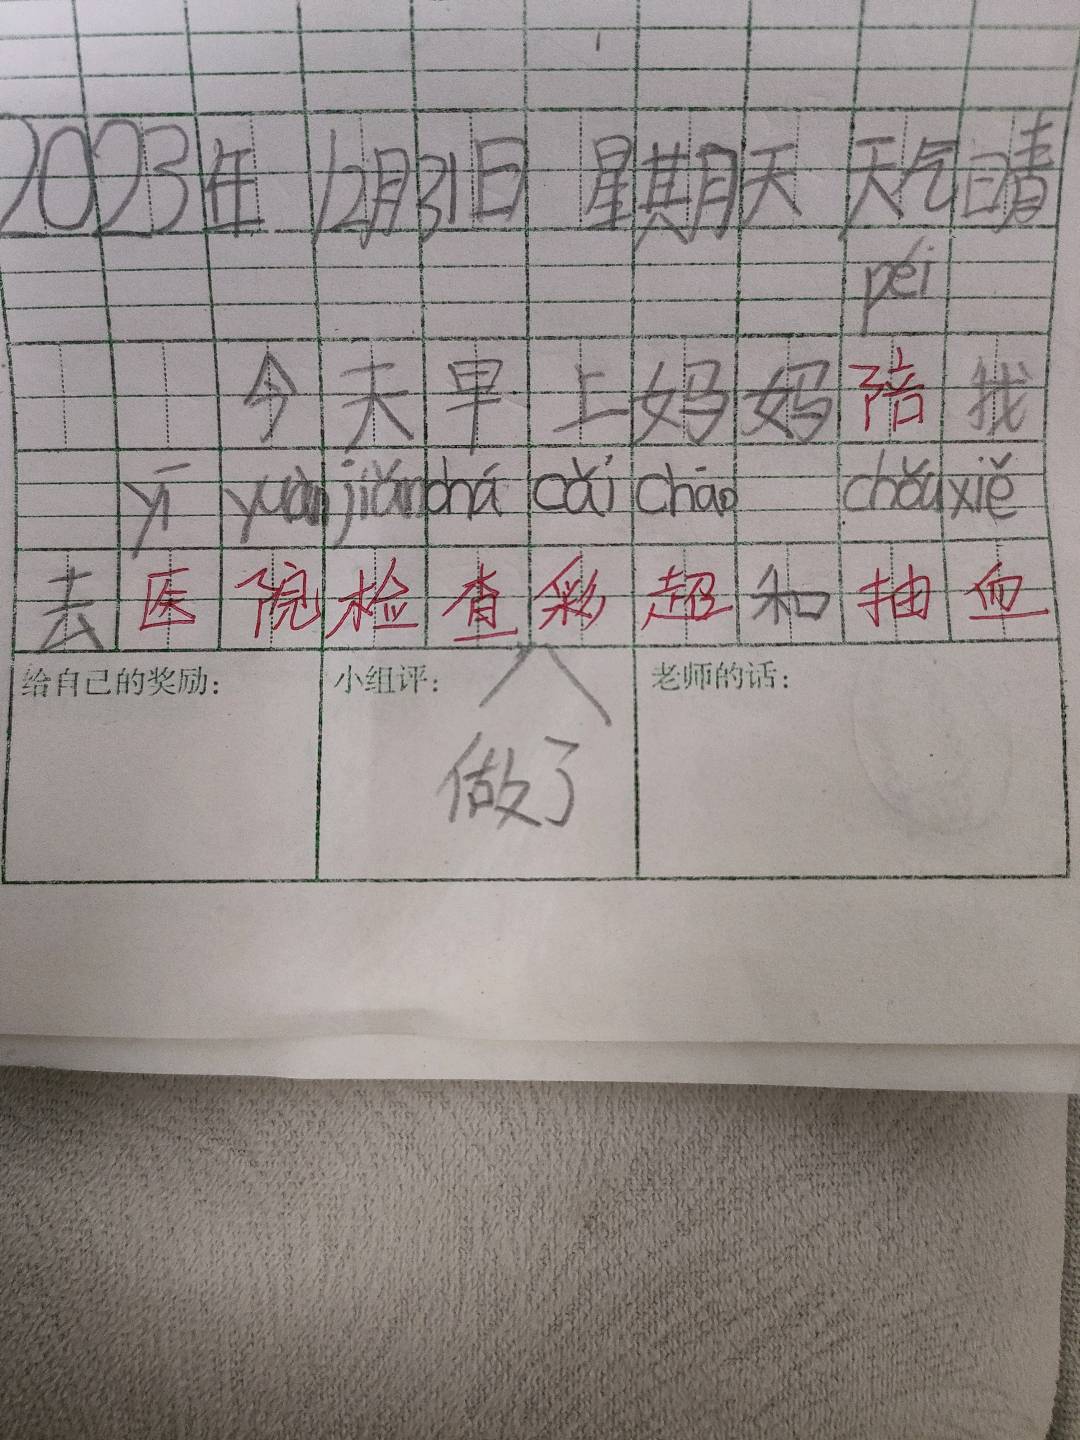 2023年 12月31日 星期天 天气晴
péi
今天早上妈妈陪找
yī yuàn jiǎn chá cǎi chāo chōu xiě
去医院检查彩超和抽血
给自己的奖励: 小组评: 老师的话:
做了